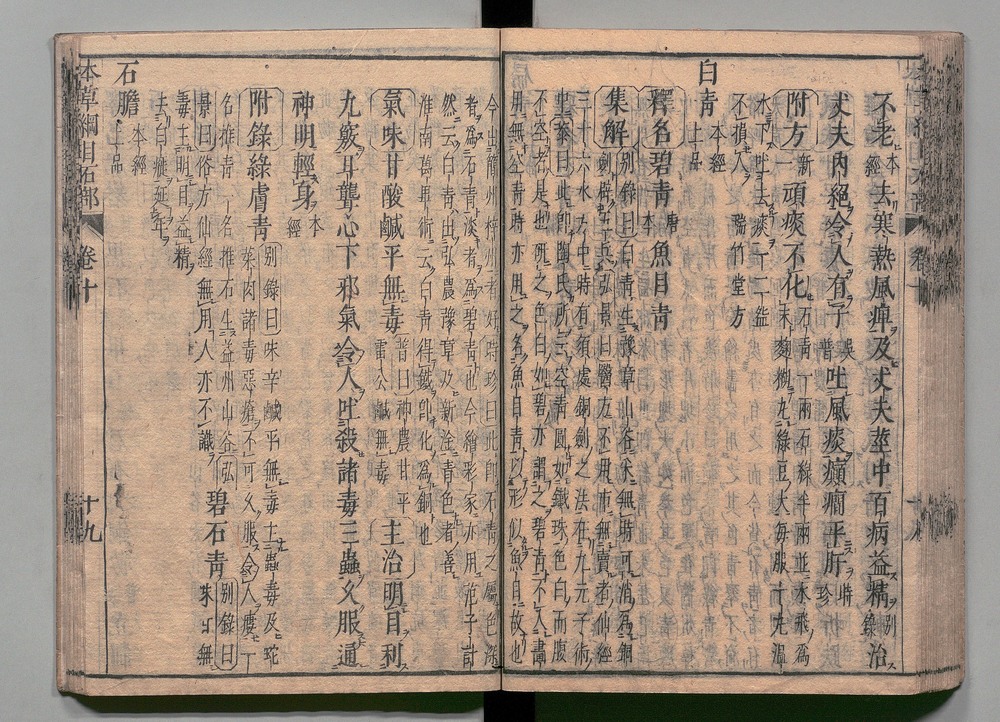 不老本經去寒熱風痺及丈夫莖中百病益精別錄治
丈夫內絕令人有子吳普吐風痰癲癇平肝時珍
附方新一頑痰不化石青一兩石綠半兩並水飛為末麪糊丸綠豆大每服十丸溫水下吐去痰一二盌不損人瑞竹堂方
白青本經上品
釋名碧青唐本魚目青
集解別錄曰白青生豫章山谷采無時可消為銅劍辟五兵弘景曰醫方不用市無賣者仙經三十六水方中時有須處銅劍之法在九元子術中恭曰此即陶氏所云空青圓如鐵珠色白而腹不空者是也研之色白如碧亦謂之碧青不入畫用無空青時亦用之名魚目青以形似魚目故也
今出簡州梓州者好時珍曰此即石青之屬色深者為石青淡者為碧青也今繪彩家亦用范子計然云白青出弘農豫章及新淦青色者善淮南萬畢術云白青得鐵即化為銅也
氣味甘酸鹹平無毒普曰神農甘平雷公鹹無毒主治明目利
九竅耳聾心下邪氣令人吐殺諸毒三蟲久服通
神明輕身本經
附錄綠膚青別錄曰味辛鹹平無毒主蟲毒及蛇菜肉諸毒惡瘡不可久服令人瘦一名推青一名推石生益州山谷弘景曰俗方仙經無用人亦不識碧石青別錄曰味甘無毒主明目益精去白癜延年
石膽本經上品
本草綱目石部 卷十 十九